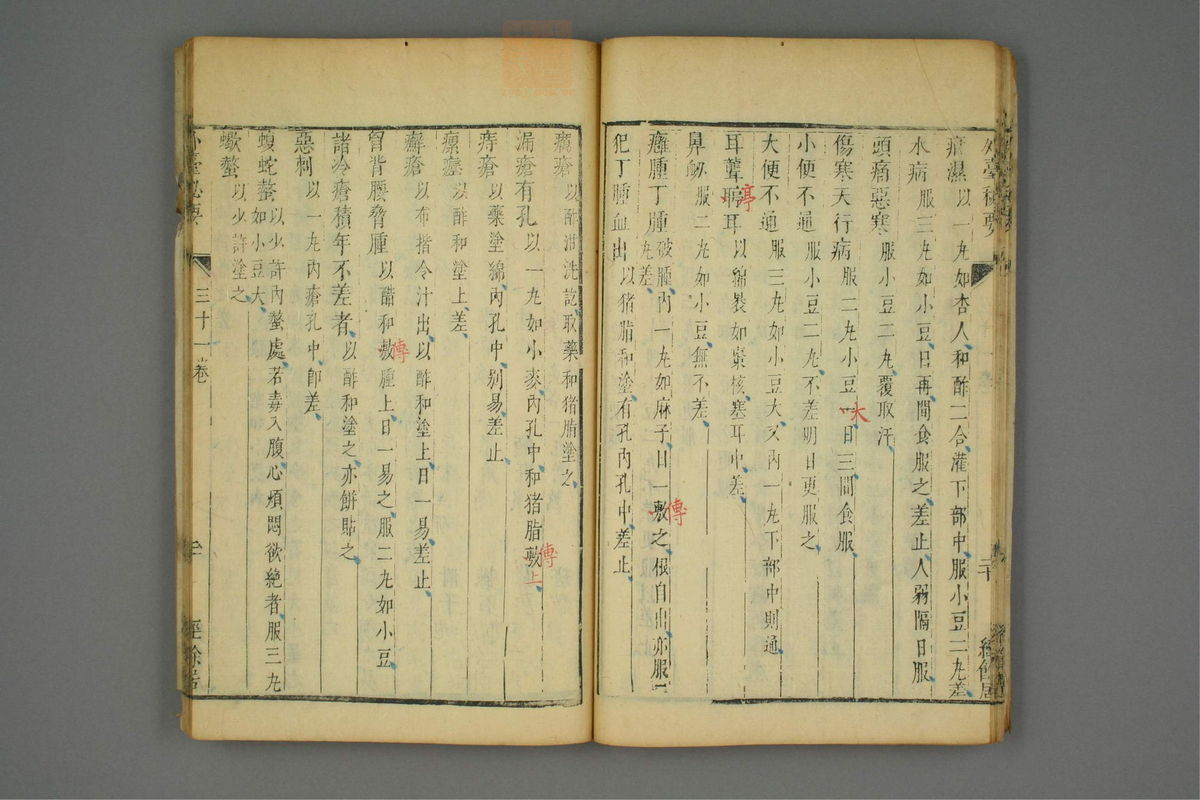 外臺秘要
疳濕以一丸如杏人和酢二合灌下部中服小豆二丸差
水病服三丸如小豆日再間食服之差止人弱隔日服
頭痛惡寒服小豆二丸覆取汗
傷寒天行病服二丸小豆一日三間食服
大
小便不通服小豆二丸不差明日更服之
大便不通服三丸如小豆大又內一丸下部中則通
耳聾聤耳以綿裝如棗核塞耳中差
亭
鼻衂服二丸如小豆無不差
癰腫丁腫破腫內一丸如麻子日一敷之根自出亦服一
丸差
傅
犯丁腫血出以猪脂和塗有孔內孔中差止
二十
經餘居
癘瘡以酢泔洗訖取藥和猪脂塗之
漏瘡有孔以一丸如小麥內孔中和猪脂敷上
傅
痔瘡以藥塗綿內孔中別易差止
瘰癧以酢和塗上差
癬瘡以布揩令汁出以酢和塗上日一易差止
胷背腰脅腫以醋和敷腫上日一易之服二丸如小豆
傅
諸冷瘡積年不差者以酢和塗之亦餅貼之
惡刺以一丸內瘡孔中卽差
蝮蛇螫以少許內螫處若毒入腹心煩悶欲絶者服三丸
如小豆大
蠍螫以少許塗之
外臺秘要
三十一卷
經餘居